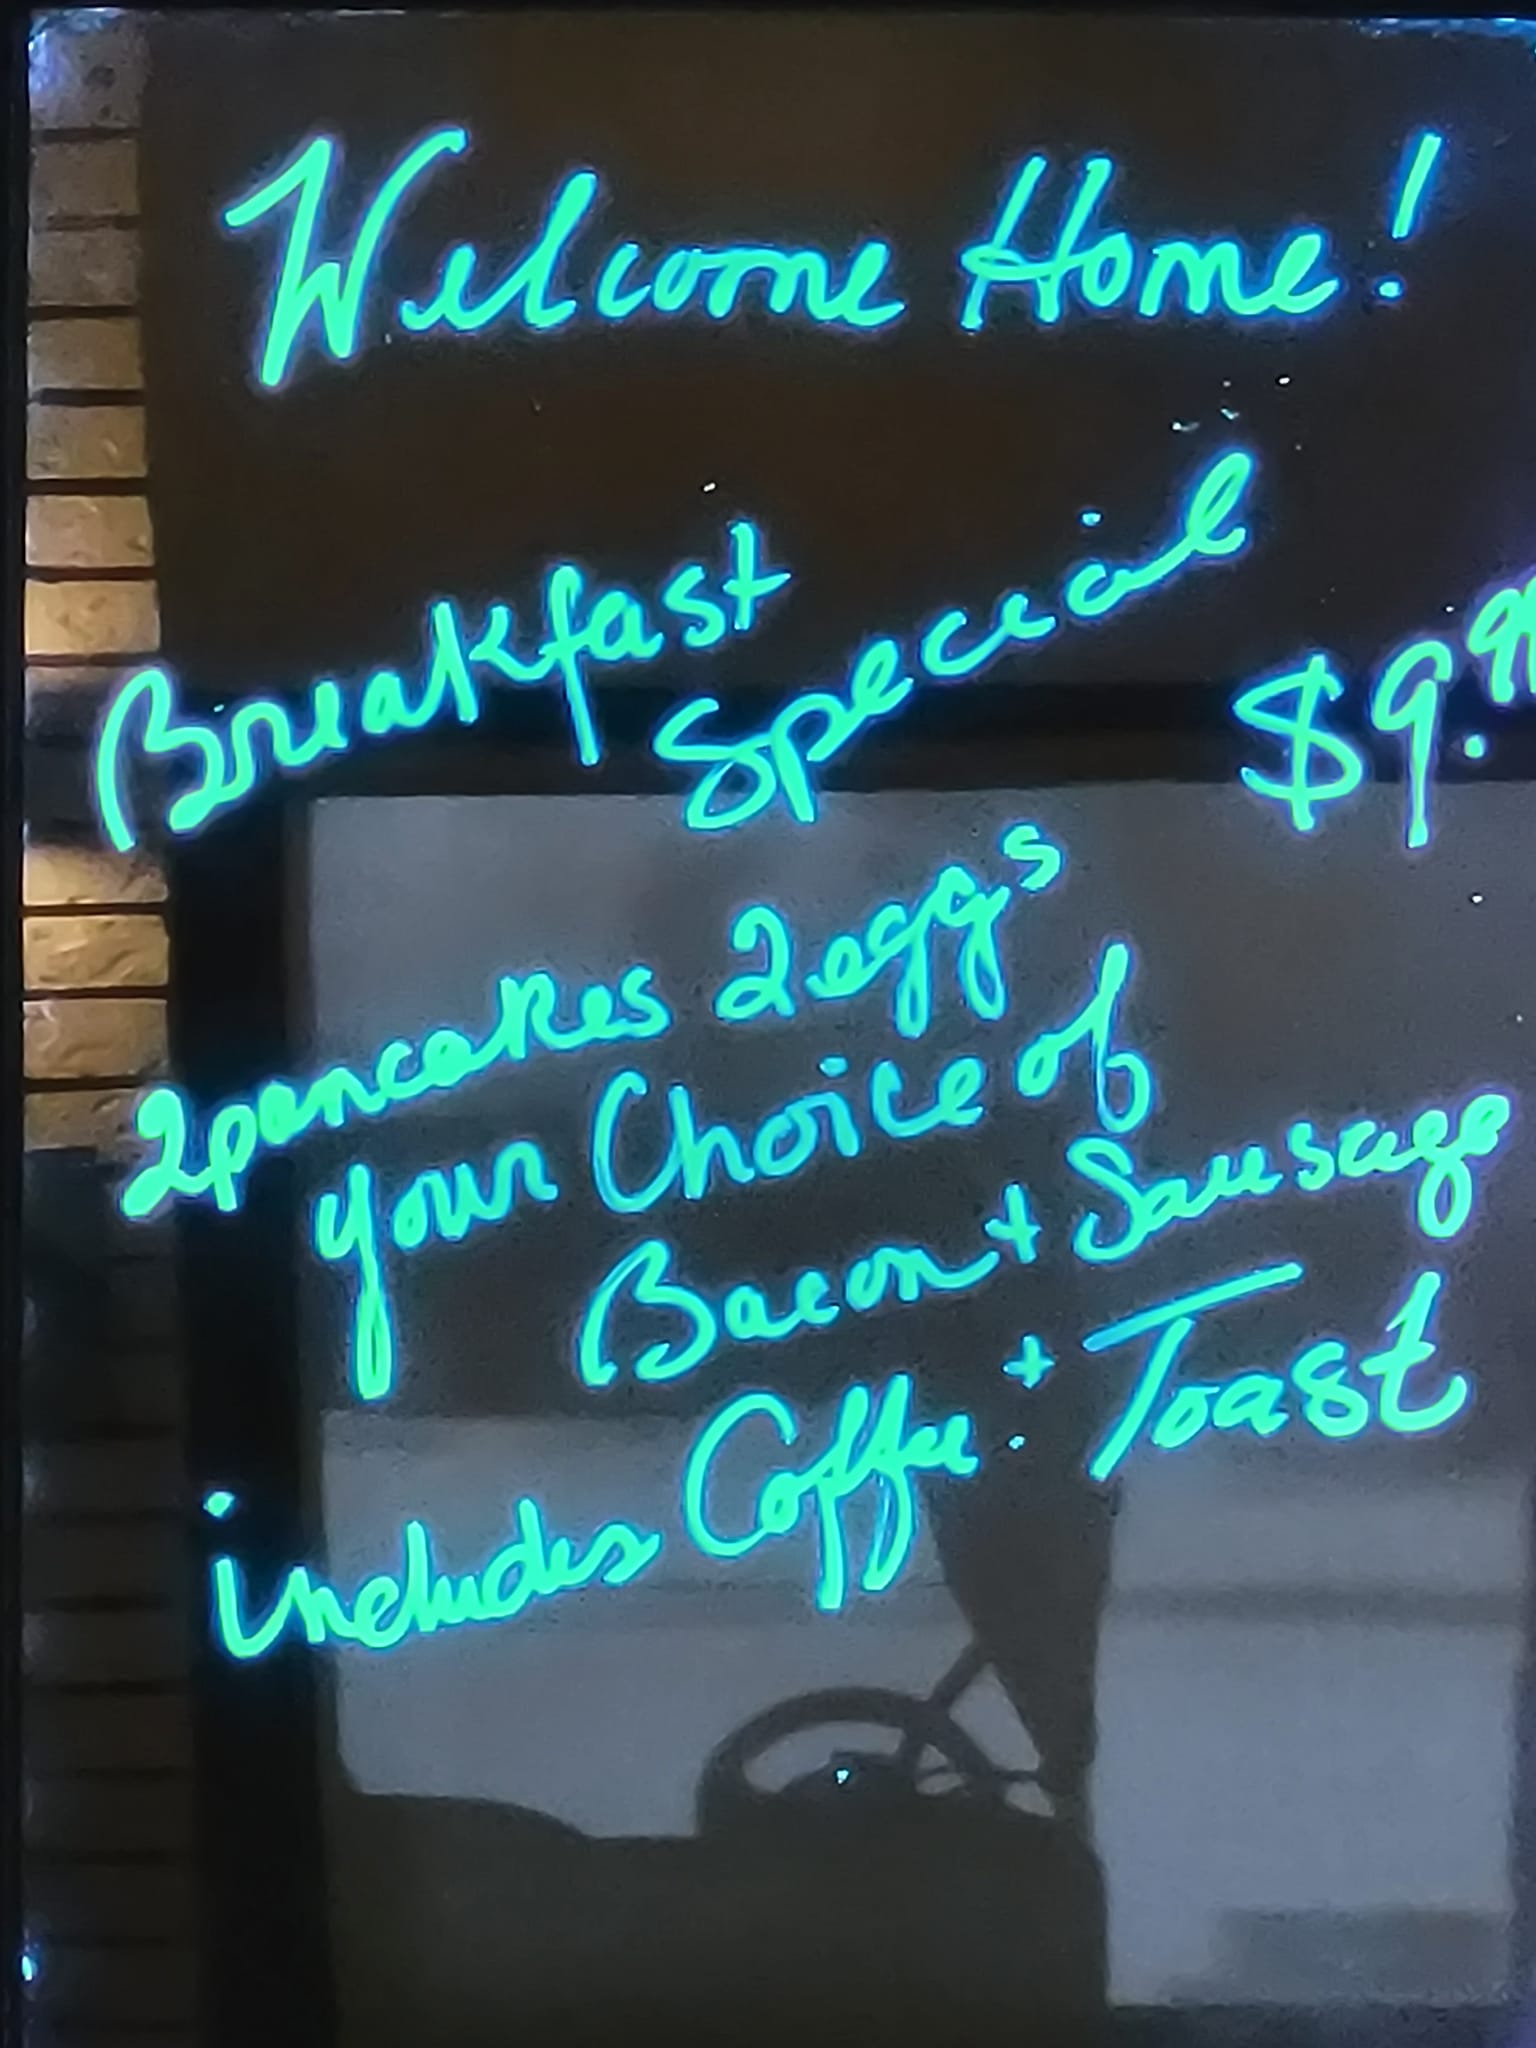 Welcome Home!
Breakfast
Special
$9.99
2 pancakes 2 eggs
your Choice of
Bacon + Sausage
includes Coffee + Toast